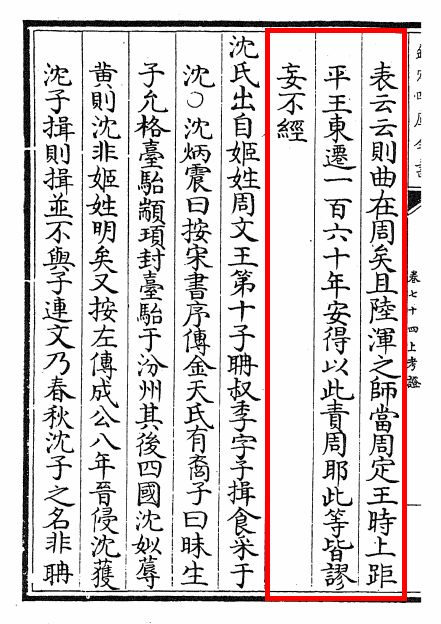 表云云則曲在周矣且陸渾之師當周定王時上距
平王東遷一百六十年安得以此責周耶此等皆謬
妄不經
沈氏出自姬姓周文王第十子聃叔季字子揖食采于
沈○沈炳震曰按宋書序傳金天氏有裔子曰昧生
子允格臺駘顓頊封臺駘于汾州其後四國沈姒蓐
黄則沈非姬姓明矣又按左傳成公八年晉侵沈獲
沈子揖則揖並不與子連文乃春秋沈子之名非聃
卷七十四上考證